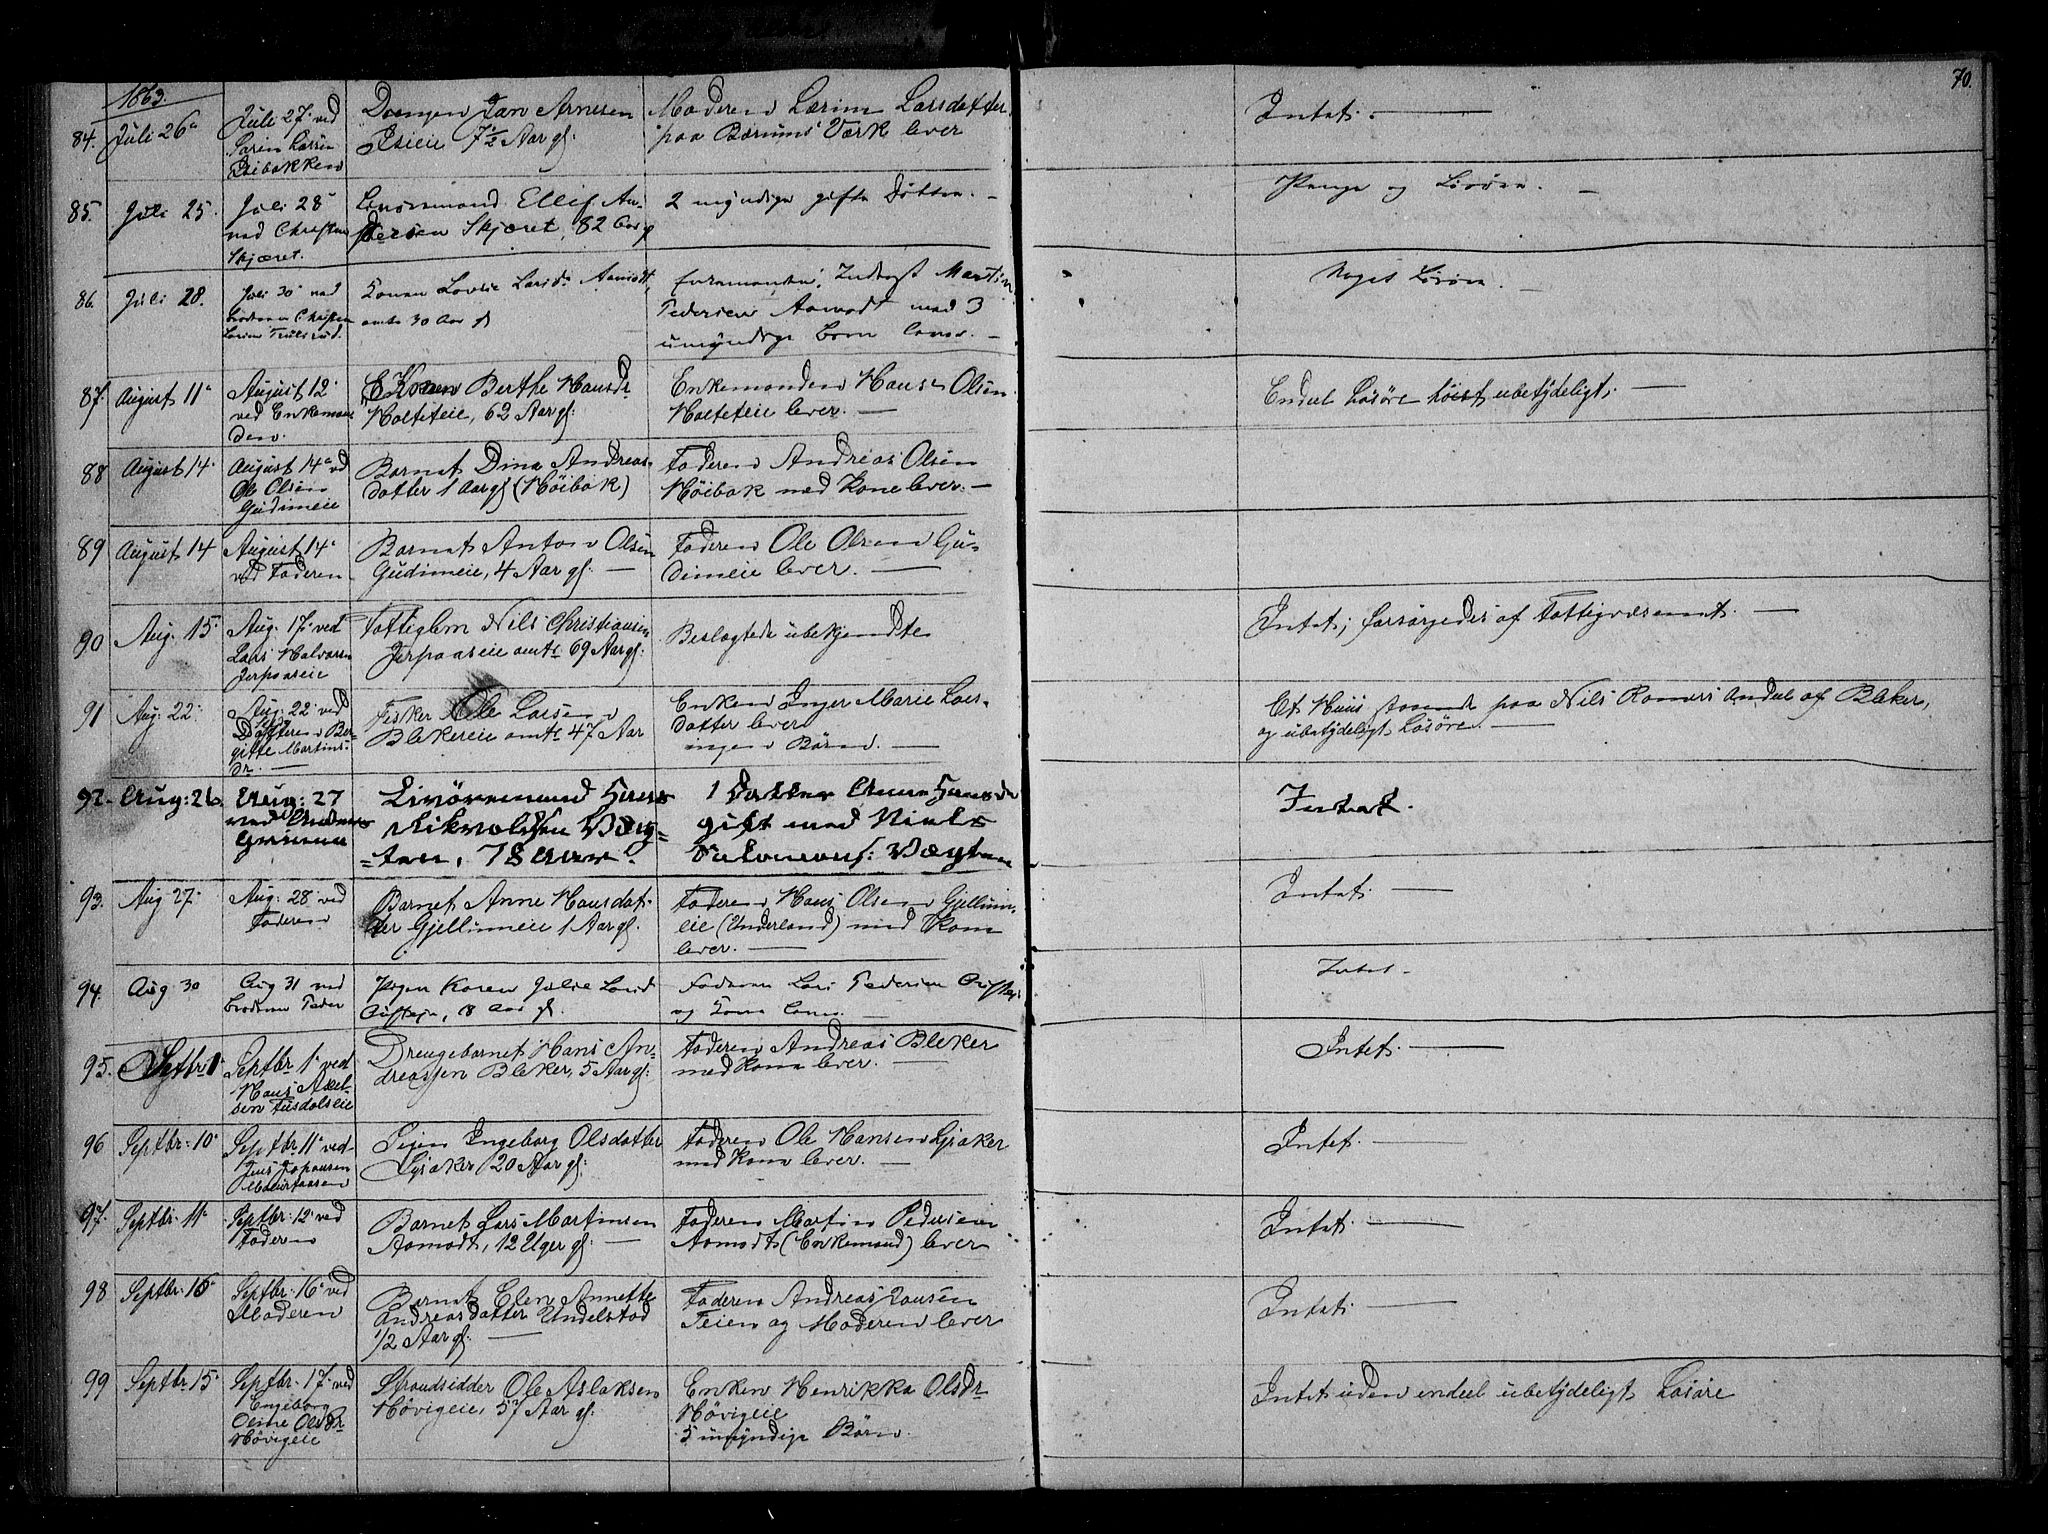 70.
1863.
84. Juli 26de
Juli 27 ved
Søren Larsen
Eibakken
Drengen Jan Arnesen
Isieie 7½ Aar gl:
Moderen Larine Larsdatter
paa Bærums Værk lever
Intet. —
85. Juli 25.
Juli 28
ved Christian
Skjæret.
Livøremand Ellif An-
dersen Skjæret, 82 Aar gl
2 myndige gifte Døttre. —
Penge og Løsøre. —
86. Juli 28.
Juli 30 ved
Broderen Christian
Larsen
Konen Lovise Larsdr Aamodt,
omtr 30 Aar gl
Enkemanden, Martin
Pedersen Aamodt med 3
umyndige Børn lever. —
Noget Løsøre. —
87. August 11
August 12
ved Enkeman
den.
Konen Berthe Hansdr
Holteteie, 62 Aar gl:
Enkemanden Hans Olsen
Holteteie lever. —
Endeel Løsøre høist ubetydeligt. —
88 August 14
August 14 ved
Ole Olsen
Gudimeie
Barnet Dina Andreas-
datter 1 Aar gl (Høibak)
Faderen Andreas Olsen
Høibak med Kone lever. —
89 August 14
August 14
ved Faderen
Barnet Anton Olsen
Gudimeie, 4 Aar gl: —
Faderen Ole Olsen Gu-
dimeie lever. —
90 Aug. 15
Aug. 17 ved
Lars Halvorsen
Jerpaaseie
Fattiglem Nils Christiansen
Jerpaaseie omtr 69 Aar gl:
Beslægtede ubekjendte
Intet; forsørgedes af Fattigvæsenet. —
91 Aug: 22
Aug: 22 ved
Datteren Ber-
gitte Martins-
dr. —
Fisker Ole Larsen
Blekereie omtr 47 Aar
Enken Inger Marie Lars-
datter lever
ingen Børn. —
Et Huus paa Nils Romers Andeel af Bleker,
og ubetydeligt Løsøre. —
92. Aug: 26
Aug: 27
ved Anders
Grinien
Livöremand Hans
Mikkelsen Væg-
-ten, 78 Aar.
1 Datter Anne Hansdr
gift med Niels
Salomons: Vægten
Intet.
93. Aug 27
Aug: 28 ved
Faderen
Barnet Anne Hansdat-
ter Gjellumeie 1 Aar gl.
Faderen Hans Olsen Gjellum-
eie (Underland) med Kone
lever. —
Intet. —
94. Aug 30
Aug 31 ved
Broderen Peder
Pigen Karen Julie Larsd
18 Aar gl.
Faderen Lars Pedersen
og Kone lever. —
Intet. —
95. Septbr 1
Septbr 1 ved
Hans Axel-
sen Fusdalseie
Drengebarnet Hans An-
dreassen Bleker, 5 Aar gl:
Faderen Andreas Bleker
med Kone lever. —
Intet. —
96 Septbr: 10
Septbr 11 ved
Jens Johansen
Pigen Ingeborg Olsdatter
Lysaker 20 Aar gl:
Faderen Ole Hansen Lysaker
med Kone lever. —
Intet. —
97. Septbr: 11
Septbr: 12 ved
Faderen
Barnet Lars Martinsen
Aamodt, 12 Uger gl: —
Faderen Martin Pedersen
Aamodt (Enkemand) lever
Intet. —
98 Septbr: 15
Septbr: 16 ved
Moderen
Barnet Elen Annette
Andreasdatter Undelstad
1/2 Aar gl: —
Faderen Andreas Hansen
Teien og Moderen lever
Intet. —
99 Septbr 15
Septbr. 17 ved
Engeborg
Oline Olsdr
Høvigeie
Strandsidder Ole Aslaksen
Høvigeie, 57 Aar gl:
Enken Henrikka Olsdr
Høvigeie
5 umyndige Børn.
Intet uden endeel ubetydeligt Løsøre